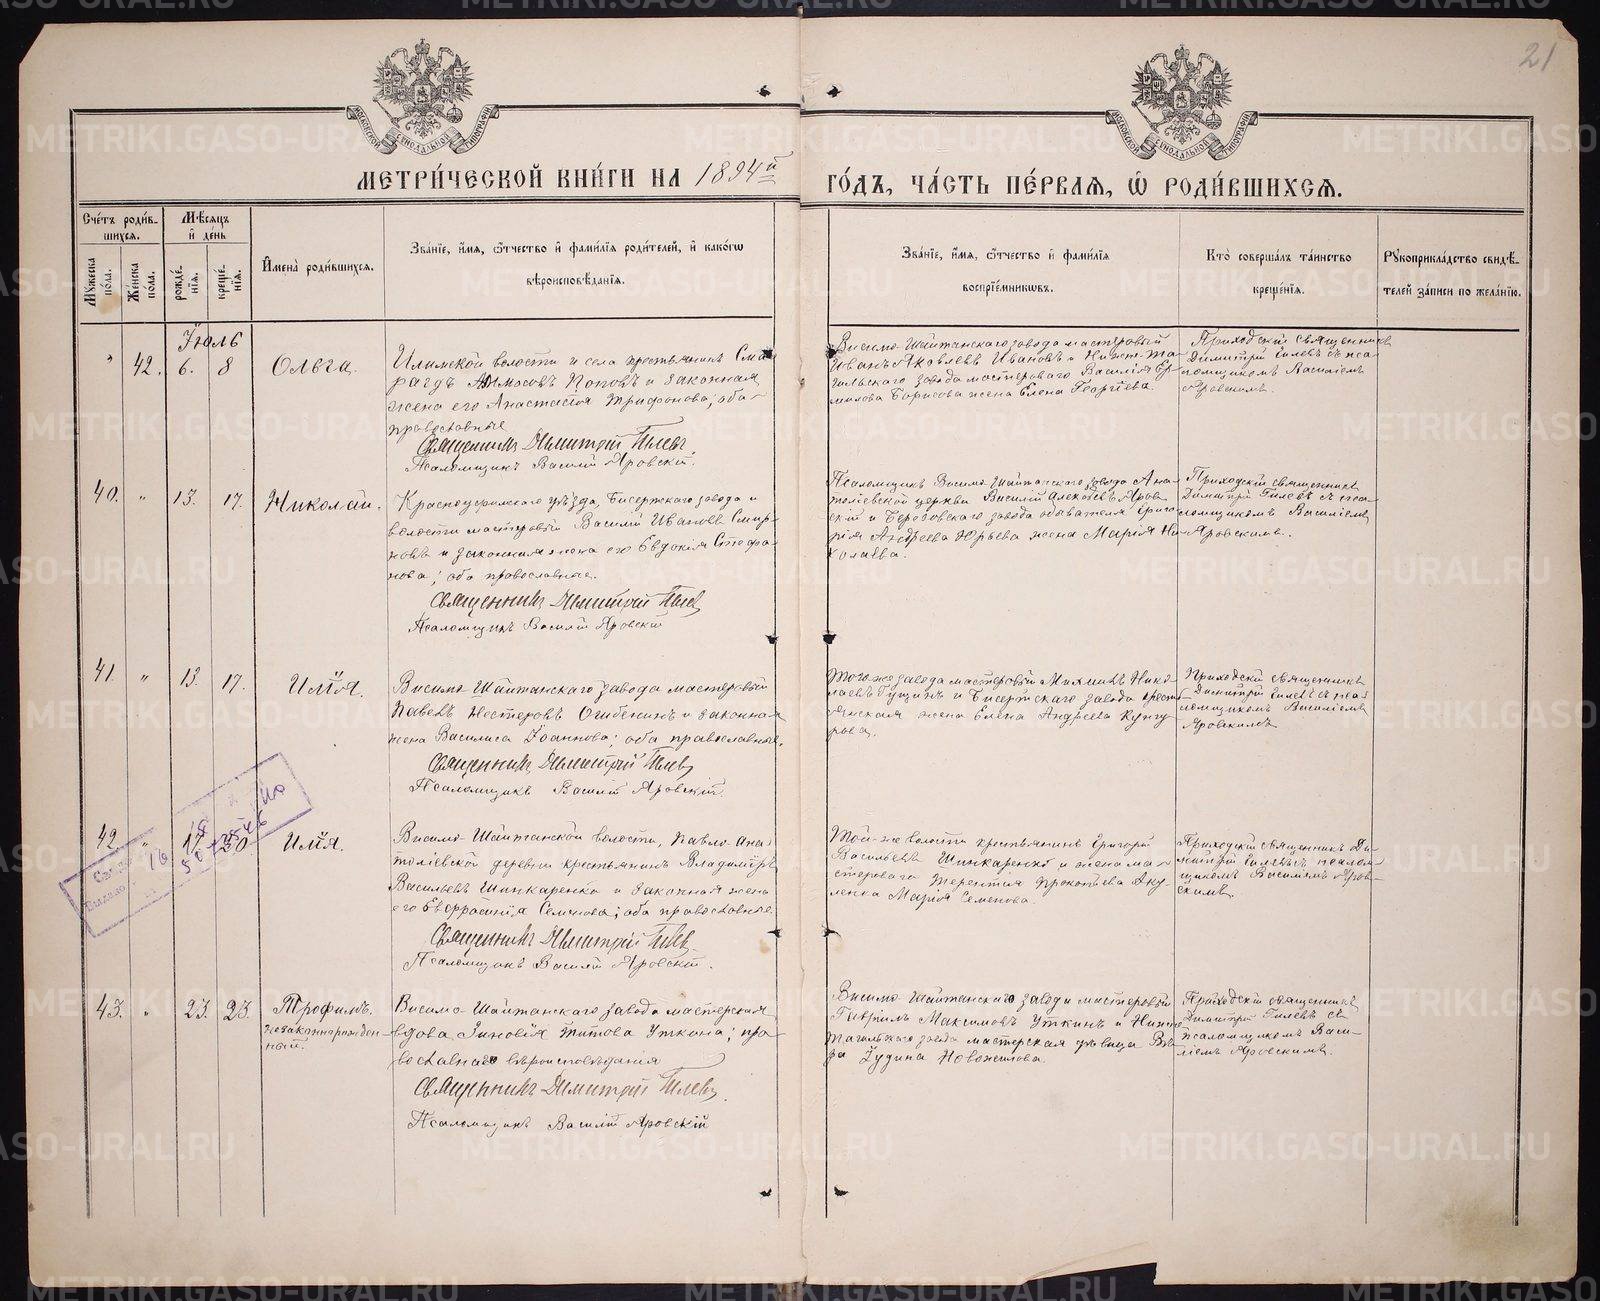 21
МОСКОВСКОЙ СѴНОДАЛЬНОЙ ТИПОГРАФІИ
МОСКОВСКОЙ СѴНОДАЛЬНОЙ ТИПОГРАФІИ
МЕТРИ́ЧЕСКОЙ КНИ́ГИ НА 1894й ГО́ДЪ, ЧА́СТЬ ПЕ́РВАЯ, Ѡ РОДИ́ВШИХСЯ.
Сче́тъ роди́в-
шихся.
Мѣ́сяцъ
и де́нь
Мꙋжеска
по́ла.
Же́нска
по́ла.
рожде́-
нія.
креще́-
нія.
Имена̀ роди́вшихся.
Зва́ніе, и́мя, ѻ҆́тчество и фами́лія роди́телей, и како́гѡ
вѣроисповѣ́данія.
Зва́ніе, и́мя, ѻ҆́тчество и фами́лія
воспріе́мникѡвъ.
Кто̀ соверша́лъ та́инство
креще́нія.
Рꙋкоприкла́дство свидѣ́-
телей за́писи по жела́нію.
Іюль
" 42. 6. 8 Ольга.
Илимской волости и села крестьянинъ Сма-
рагдъ Амосовъ Поповъ и законная
жена его Анастасія Трифонова; оба
православные
Священникъ Димитрій Гилевъ
Псаломщикъ Василій Яровскій.
Висимо-Шайтанскаго завода мастеровый
Иванъ Яковлевъ Ивановъ и Нижне-Та-
гильскаго завода мастероваго Василія Ер-
милова Борисова жена Елена Георгіева.
Приходскій священникъ
Димитрій Гилевъ съ пса-
ломщикомъ Василіемъ
Яровскимъ.
40. " 13. 17. Николай.
Красноуфимскаго уѣзда, Бисертскаго завода и
волости мастеровый Василій Ивановъ Смир-
новъ и законная жена его Евдокія Стефа-
нова; оба православные.
Священникъ Димитрій Гилевъ
Псаломщикъ Василій Яровскій
Псаломщикъ Висимо-Шайтанскаго завода Ана-
толіевской церкви Василій Алексѣевъ Яров-
скій и Березовскаго завода обывателя Григо-
рія Андреева Юрьева жена Марія Ни-
колаева.
Приходскій священникъ
Димитрій Гилевъ съ пса-
ломщикомъ Василіемъ
Яровскимъ.
41. " 13. 17. Илія.
Висимо-Шайтанскаго завода мастеровый
Павелъ Нестеровъ Огибенинъ и законная
жена Василиса Іоаннова; оба православные.
Священникъ Димитрій Гилевъ
Псаломщикъ Василій Яровскій.
Того же завода мастеровый Михаилъ Нико-
лаевъ Гущинъ и Бисертскаго завода кресть-
янская жена Елена Андреева
Приходскій священникъ
Димитрій Гилевъ съ пса-
ломщикомъ Василіемъ
Яровскимъ
42. " 17. 30 Илія.
Висимо-Шайтанской волости, Павло-Ана-
толіевской деревни крестьянинъ Владиміръ
Васильевъ Шинкаренко и законная жена
его Евфрасинія Семенова; оба православные.
Священникъ Димитрій Гилевъ
Псаломщикъ Василій Яровскій.
Той-же волости крестьянинъ Григорій
Васильевъ Шинкаренко и жена ма-
стероваго Терентія Прокопьева Аку-
ленка Марія Семенова.
Приходскій священникъ Ди-
митрій Гилевъ съ псалом-
щикомъ Василіемъ Яров-
скимъ.
43. " 23. 23. Трофимъ.
незаконнорожден-
ный.
Висимо-Шайтанскаго завода мастерская
вдова Зиновія Титова Уткина; пра-
вославнаго вѣроисповѣданія
Священникъ Димитрій Гилевъ.
Псаломщикъ Василій Яровскій
Висимо-Шайтанскаго завода мастеровый
Гавріилъ Максимовъ Уткинъ и Нижне-
тагильскаго завода мастерская дѣвица Вѣ-
ра Іудина Новожилова.
Приходскій священникъ
Димитрій Гилевъ съ
псаломщикомъ Васи-
ліемъ Яровскимъ.
METRIKI.GASO-URAL.RU